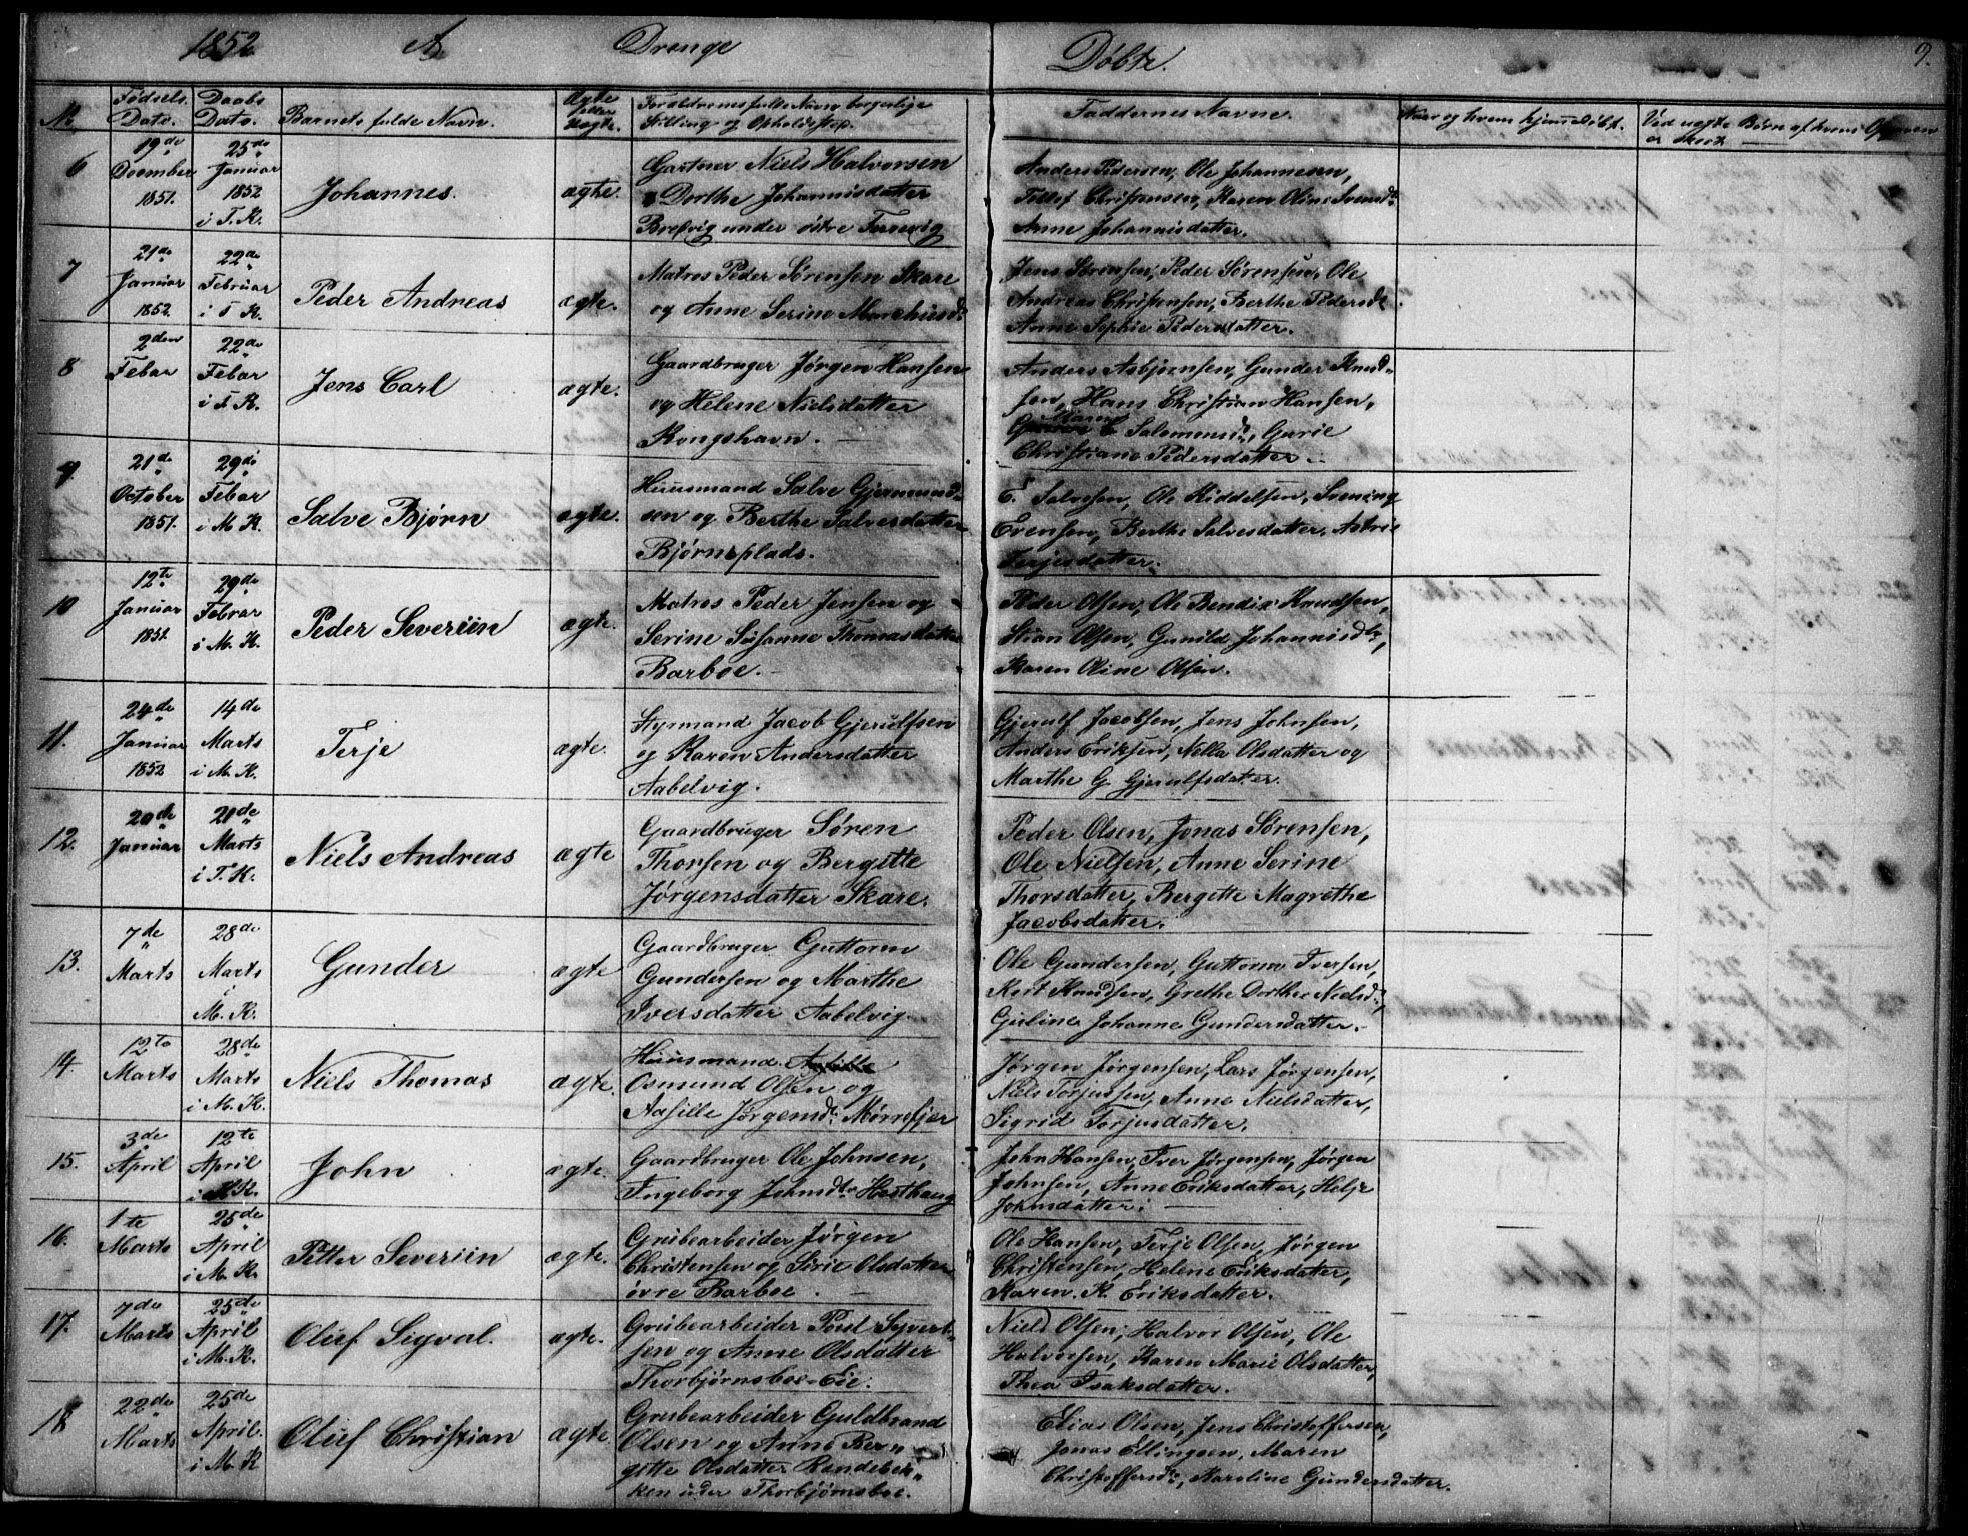 1852 A. Drenge Døbte. 9.
No. Fødsels Dato. Daabs Dato. Barnets fulde Navn. Ægte eller uægte. Forældrenes fulde Navn borgerlige Stilling og Opholdssted. Faddernes Navne. Naar og hvem hjemmedøbt. Ved uægte Børn af hvem Opgaven er skeet
6 19de December 1851. 25de Januar 1852 i T. K. Johannes. ægte. Gartner Niels Halvorsen
Dorthe Johannisdatter
Brekvig under østre Torvevig
Anders Pedersen, Ole Johannesen,
Tollef Christensen, Karen Oline Svensd.
Anne Johannisdatter.
7 21de Januar 1852. 22de Februar i T. K. Peder Andreas ægte. Matros Peder Sørensen Skare
og Anne Serine Marchusd.
Jens Sørensen, Peder Sørensen, Ole
Andreas Christensen, Berthe Pedersd.
Anne Sophie Pedersdatter.
8 2den Febar 22de Febar i T. K. Jens Carl ægte. Gaardbruger Jørgen Hansen
og Helene Nielsdatter
Kongshavn.
Anders Asbjørnsen, Gunder Knud-
sen, Hans Christian Hansen,
Maren Salomonsd., Gurie
Christiane Pedersdatter.
9. 21de October 1851. 29de Febar i M. K. Salve Bjørn ægte. Huusmand Salve Gjermund-
sen og Berthe Salvesdatter
Bjørnsplads.
E. Salvesen, Ole Kiddelsen, Svening
Evensen, Berthe Salvesdatter, Astrie
Terjesdatter.
10 12te Januar 1852. 29de Febrar i M. K. Peder Severiin ægte. Matros Peder Jensen og
Serine Susanne Thomasdatter
Barboe.
Peder Olsen, Ole Bendix Knudsen,
Stian Olsen, Gunild Johannisdtr,
Karen Oline Olsen.
11. 24de Januar 1852 14de Marts i M. K. Terje ægte. Styrmand Jacob Gjerulfsen
og Karen Andersdatter
Aabelvig.
Gjerulf Jacobsen, Jens Johnsen,
Anders Eriksen, Nella Olsdatter og
Marthe G. Gjerulfsdatter.
12. 20de Januar 21de Marts i T. K. Niels Andreas ægte Gaardbruger Søren
Thorsen og Bergitte
Jørgensdatter Skare.
Peder Olsen, Jonas Sørensen,
Ole Nielsen, Anne Serine
Thorsdatter, Bergitte Magrethe
Jacobsdatter.
13. 7de Marts 28de Marts i M. K. Gunder ægte Gaardbruger Guttorm
Gundersen og Marthe
Iversdatter Aabelvig
Ole Gundersen, Guttorm Iversen,
Kort Knudsen, Grethe Dorthe Nielsd.,
Guline Johanne Gundersdatter.
14. 12te Marts 28de Marts i M. K. Niels Thomas ægte. Huusmand
Osmund Olsen og
Aasille Jørgensd. Mørrefjær
Jørgen Jørgensen, Lars Jørgensen,
Niels Torjussen, Anne Nielsdatter,
Sigrid Torjusdatter.
15. 3de April 12te April i M. K. John ægte. Gaardbruger Ole Johnsen,
Ingeborg Johnsd. Hesthaug
John Hansen, Iver Jørgensen, Jørgen
Johnsen, Anne Eriksdatter, Helje
Johnsdatter.
16. 1te Marts 25de April i M. K. Petter Severiin ægte. Grubearbeider Jørgen
Christensen og Sirie Olsdatter
øvre Barboe.
Ole Hansen, Terje Olsen, Jørgen
Christensen, Helene Eriksdatter,
Karen. K. Eriksdatter.
17. 7de Marts 25de April i M. K. Oluf Sigval. ægte. Grubearbeider Poul Syvert-
sen og Anne Olsdatter
Thorbjørnsboe-Eie.
Niels Olsen, Halvor Olsen, Ole
Halvorsen, Karen Marie Olsdatter,
Thea Isaksdatter.
18 22de Marts 25de April. i M. K Oluf Christian ægte Grubearbeider Guldbrand
Olsen og Anne Ber-
gitte Olsdatter Randebek-
ken under Thorbjørnsboe.
Elias Olsen, Jens Christoffersen,
Jonas Ellingsen, Maren
Christoffersd., Karoline Gundersdatter.